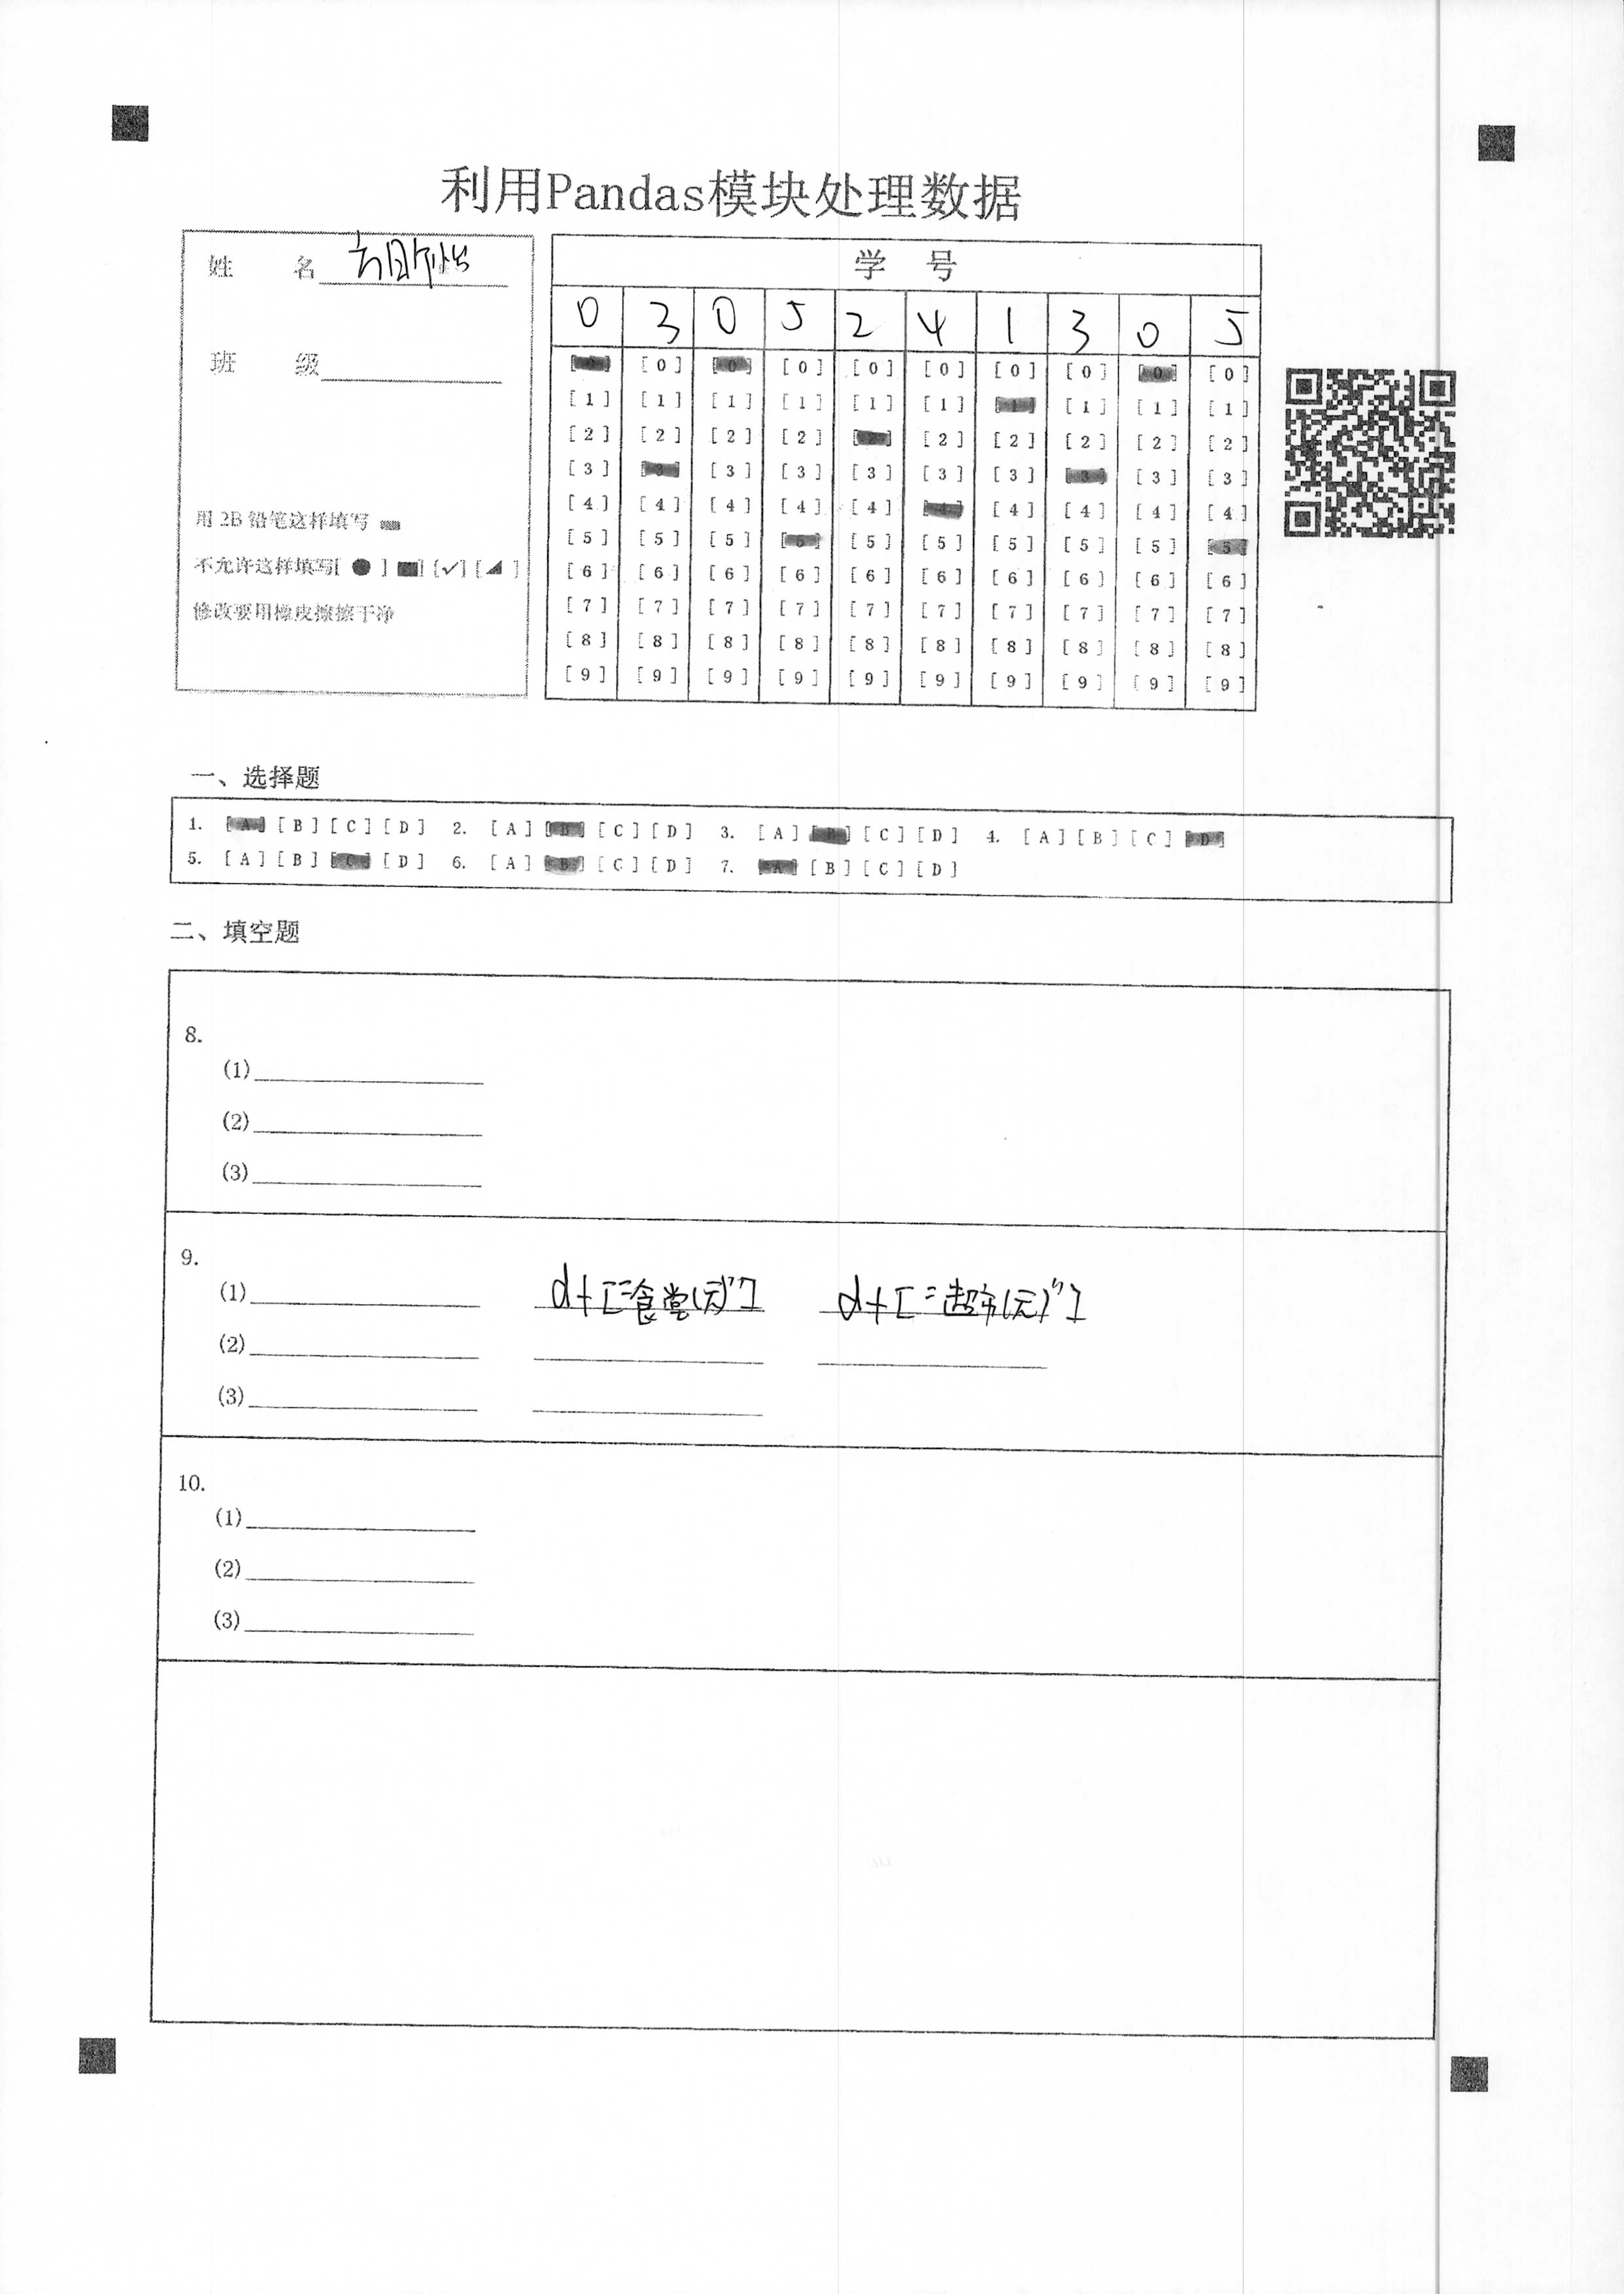 利用Pandas模块处理数据
姓 名
班 级
用 2B 铅笔这样填写
不允许这样填写[ ● ] [■] [✓] [◢ ]
修改要用橡皮擦擦干净
学 号
0 3 0 5 2 4 1 3 0 5
[0] [0] [0] [0] [0] [0] [0] [0] [0] [0]
[1] [1] [1] [1] [1] [1] [1] [1] [1] [1]
[2] [2] [2] [2] [2] [2] [2] [2] [2] [2]
[3] [3] [3] [3] [3] [3] [3] [3] [3] [3]
[4] [4] [4] [4] [4] [4] [4] [4] [4] [4]
[5] [5] [5] [5] [5] [5] [5] [5] [5] [5]
[6] [6] [6] [6] [6] [6] [6] [6] [6] [6]
[7] [7] [7] [7] [7] [7] [7] [7] [7] [7]
[8] [8] [8] [8] [8] [8] [8] [8] [8] [8]
[9] [9] [9] [9] [9] [9] [9] [9] [9] [9]
一、选择题
1. [A] [B] [C] [D] 2. [A] [B] [C] [D] 3. [A] [B] [C] [D] 4. [A] [B] [C] [D]
5. [A] [B] [C] [D] 6. [A] [B] [C] [D] 7. [A] [B] [C] [D]
二、填空题
8.
(1)
(2)
(3)
9.
(1) df["食堂(元)"] df["超市(元)"]
(2)
(3)
10.
(1)
(2)
(3)